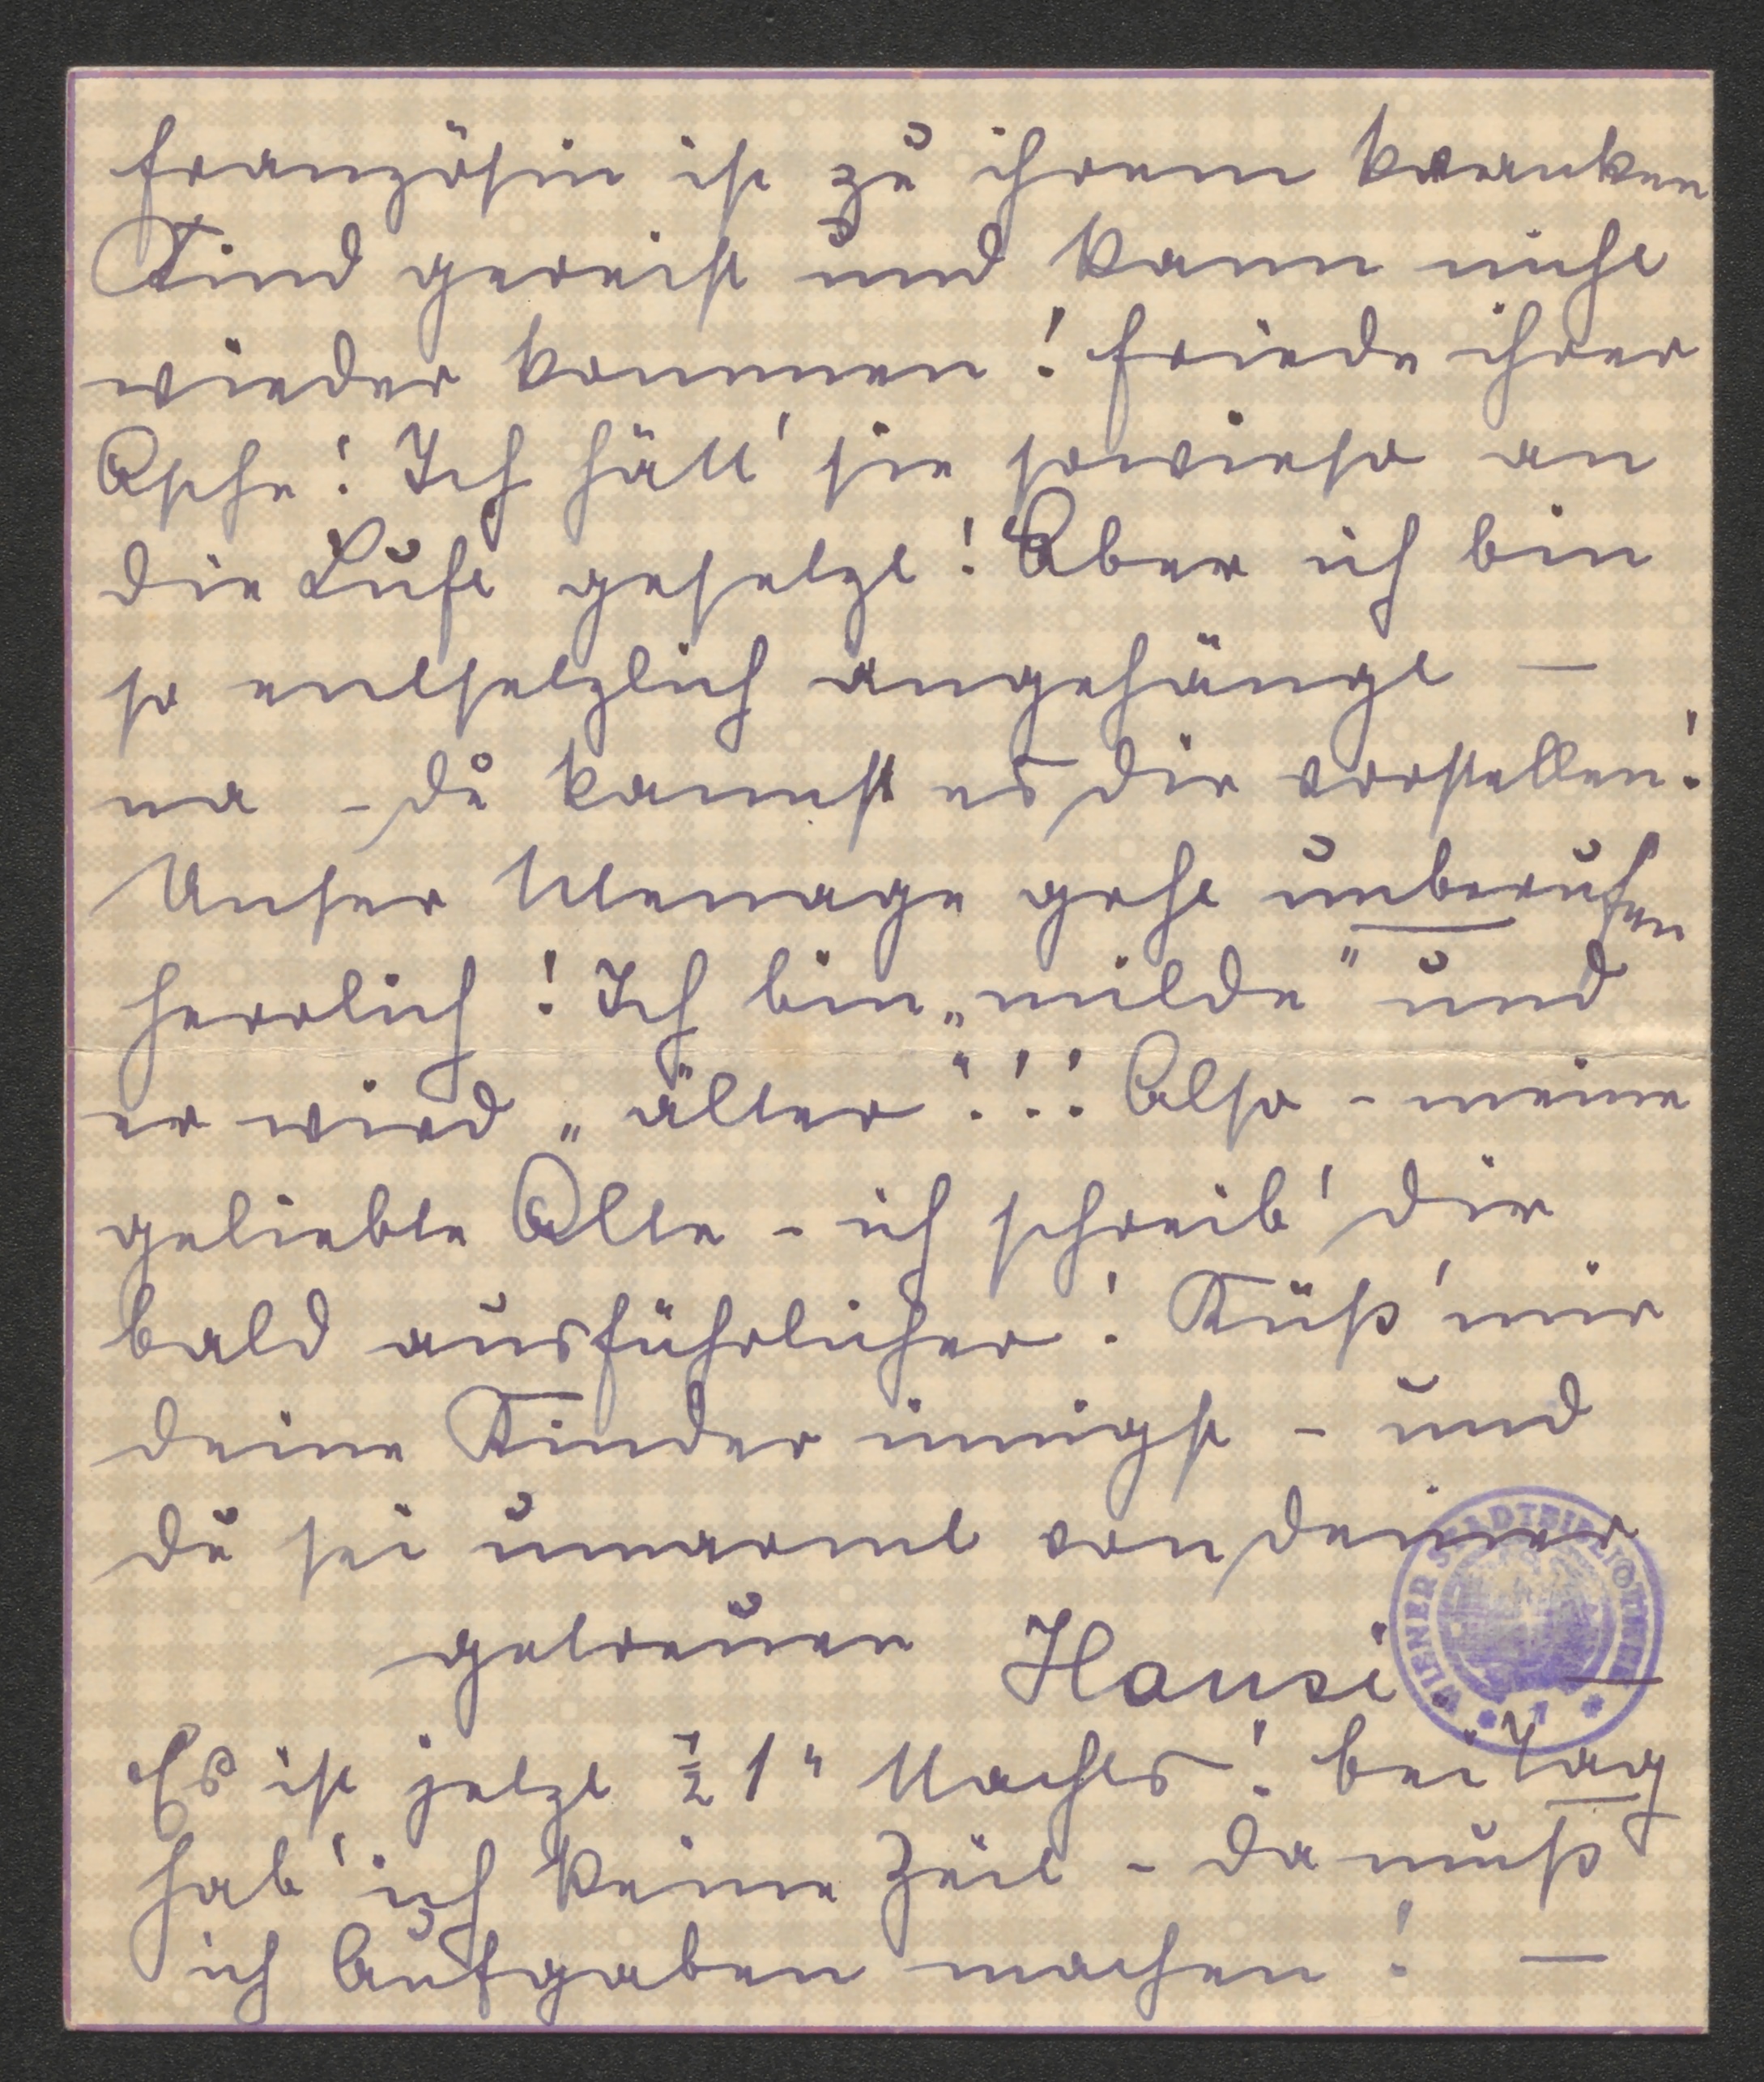 französin ist zu ihrem kranken
Kind gereist und kann nicht
wieder kommen! Friede ihrer
Asche! Ich hätt' sie sowieso an
die Luft gesetzt! Aber ich bin
so entsetzlich angehängt —
na - du kannst es dir vorstellen!
Unser Menage geht unberufen
herrlich! Ich bin „milde" und
er wird „älter"!!! Also - meine
geliebte Alte - ich schreib' dir
bald ausführlicher! Küß' mir
deine Kinder innigst - und
du sei umarmt von deiner
getreuen Hansi. —
WIENER STADTBIBLIOTHEK
Es ist jetzt ½ 1" Nachts! bei Tag
hab' ich keine Zeit - da muß
ich Aufgaben machen! —